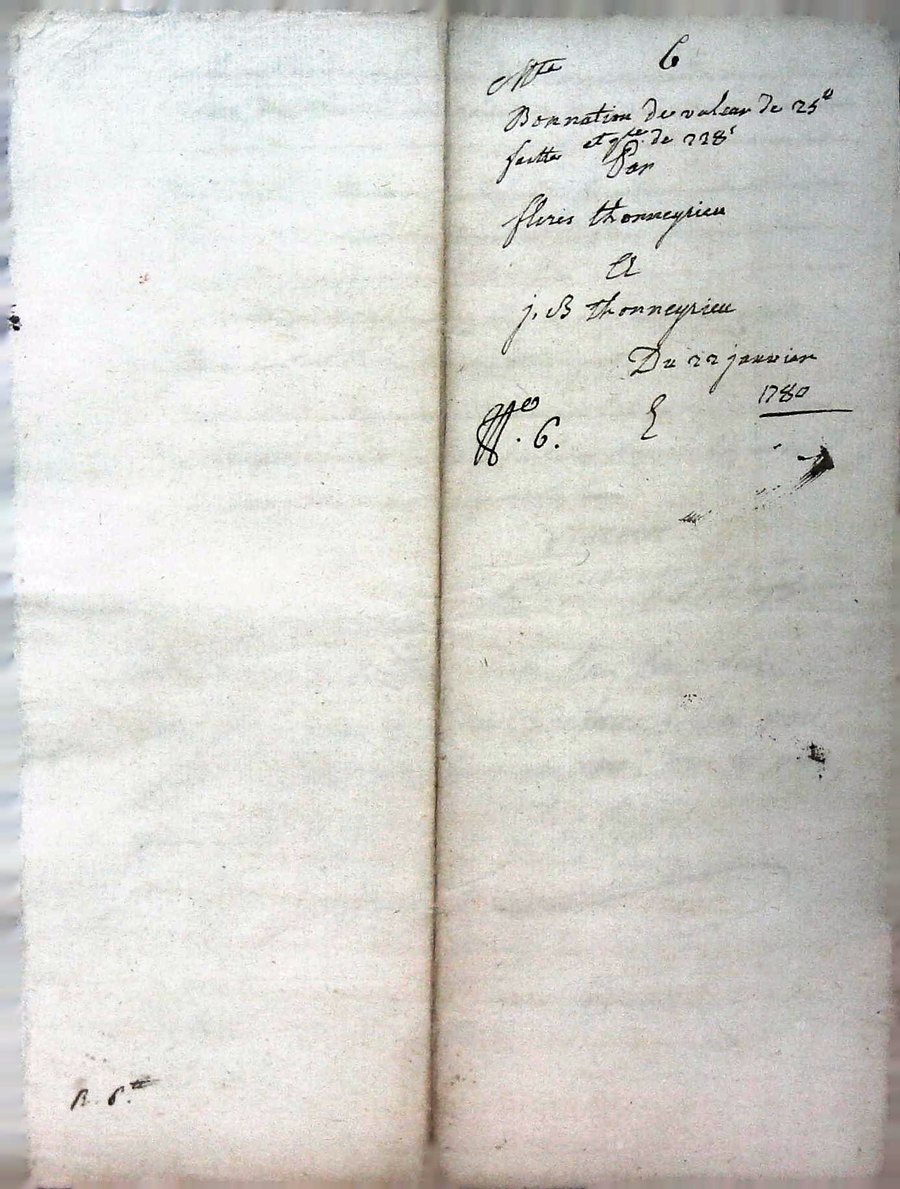 6
Donnation de valeur de 25#
et qtce de 228#
faitte Par
fleris thonneyrieu
A
j. B thonneyrieu
Du 22 janvier
1780
No. 6.